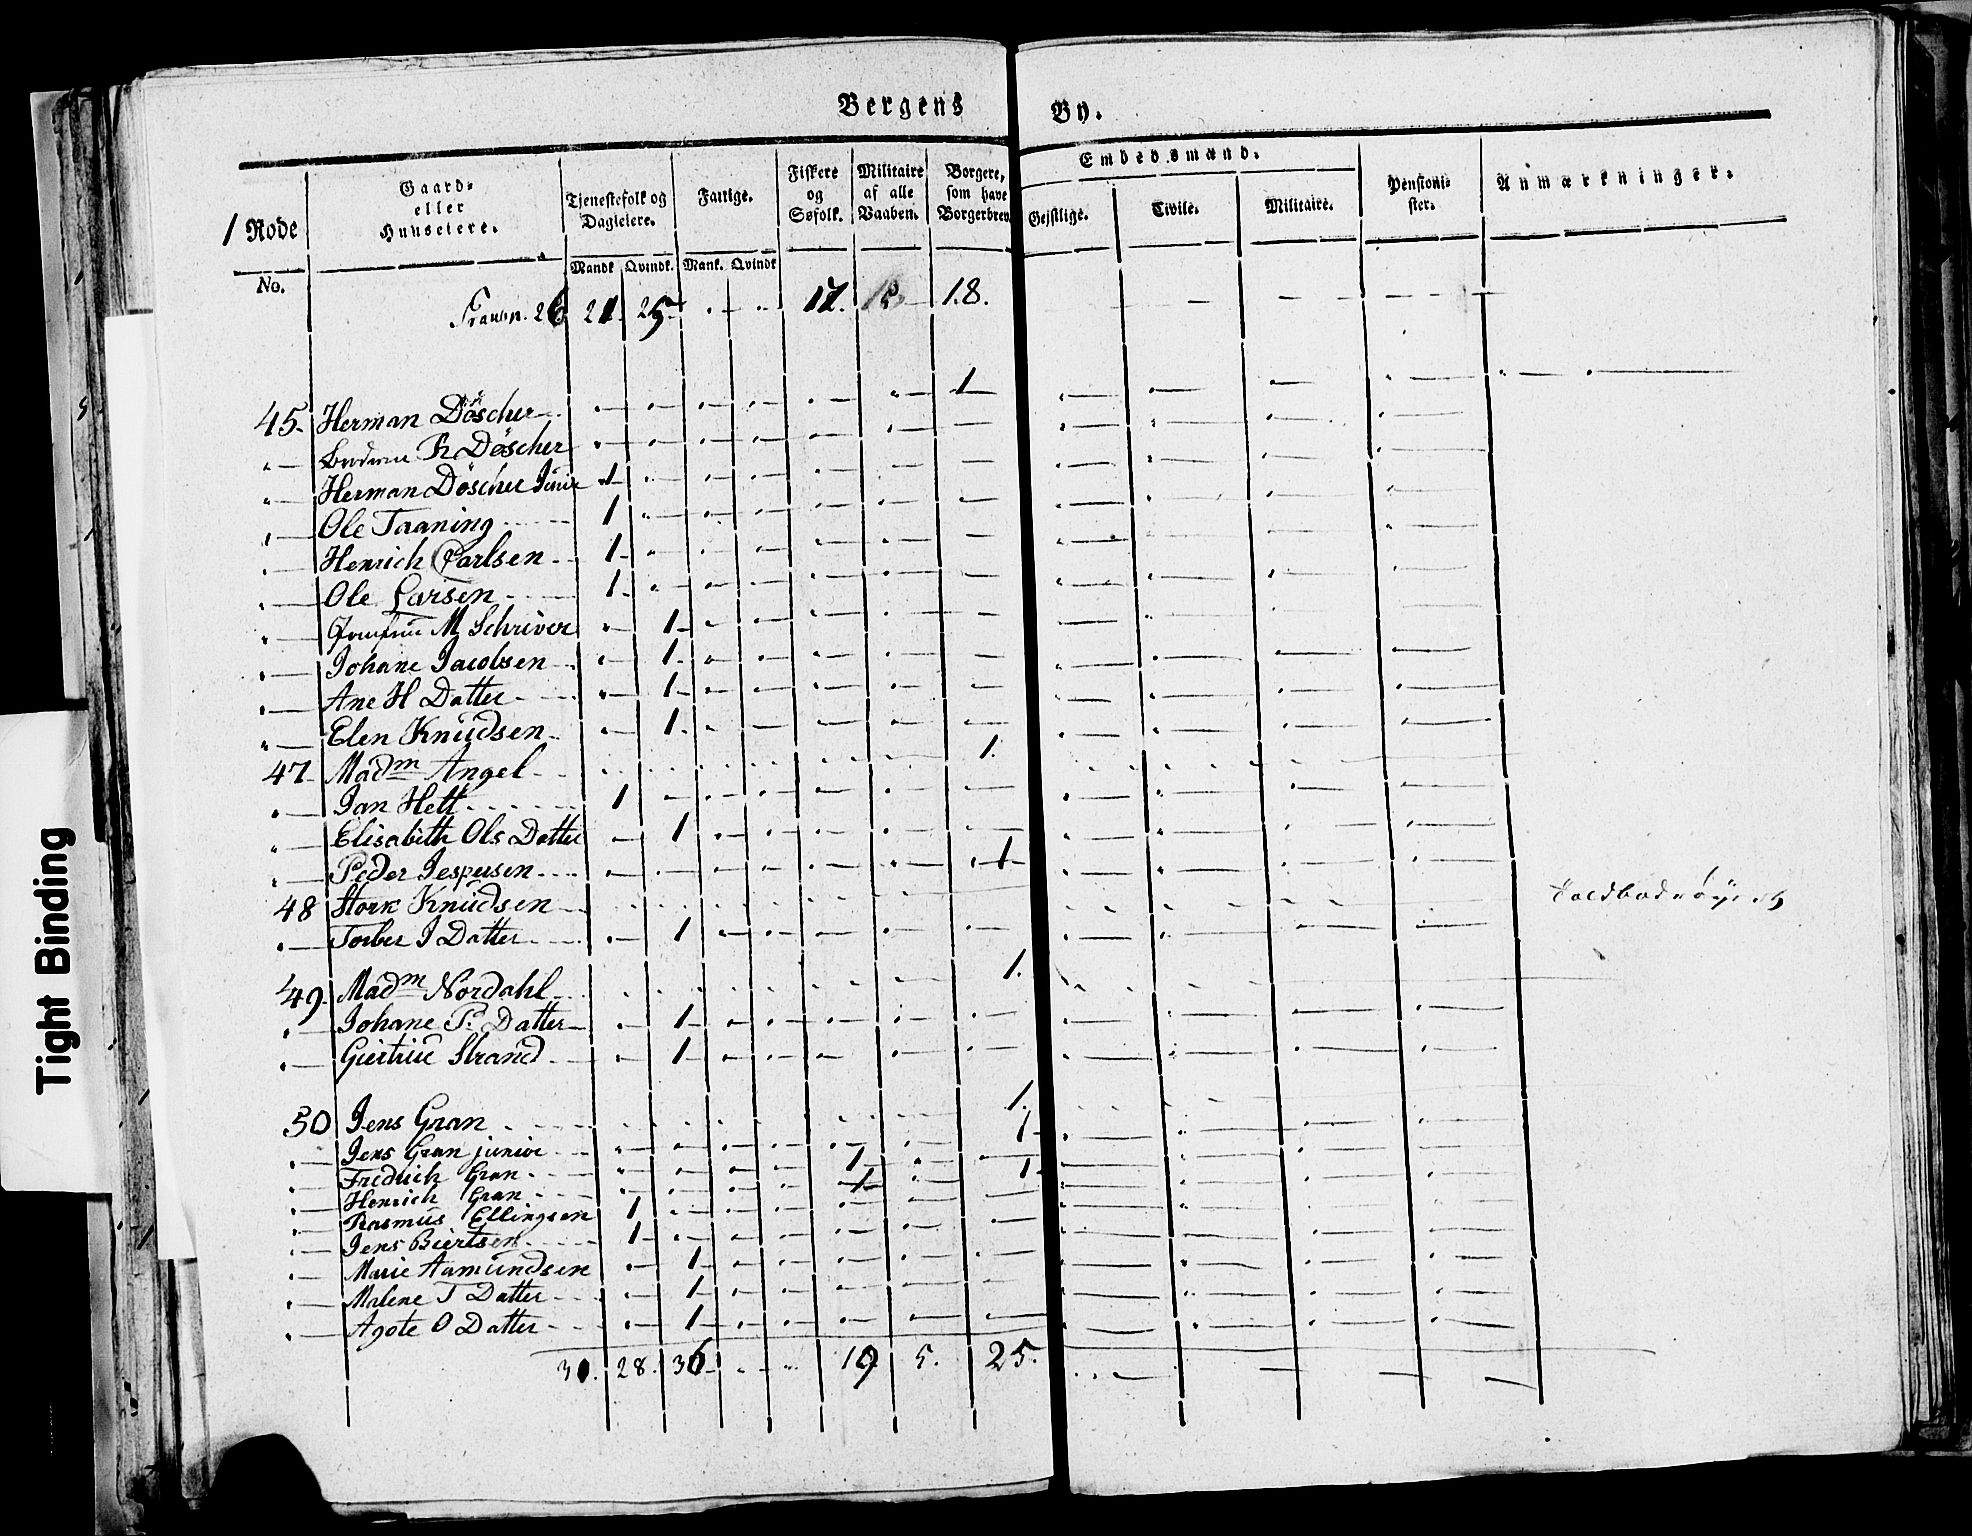 Bergens By.
1 Rode
No.
Gaard-
eller
Huuseiere.
Tjenestefolk og
Dagleiere.
Mandk Qvindk.
Fattige.
Mank. Qvindk
Fiskere
og
Søfolk.
Militaire
af alle
Vaaben.
Borgere,
som have
Borgerbrev.
Embedsmænd.
Gejstlige.
Civile.
Militaire.
Pensioni-
ster.
Anmærkninger.
Transp. 26 21. 25 17. 18.
45. Herman Döscher 1
R Döscher
Herman Döscher Junior 1
Ole Taaning 1
Henrich Carlsen 1
Ole Larsen 1
M Schriver 1
Johane Jacobsen 1
Ane H Datter 1
Elen Knudsen 1
47 Madm Angel 1.
Jan Hett 1
Elisabeth Ols Datter 1
Peder Jespersen 1
48 Stork Knudsen
Torber J Datter 1
49. Madm Nordahl 1.
Johane P. Datter 1
Giertrue Strand 1
50 Jens Gran 1.
Jens Gran junior 1
Fredrich Gran 1
Henrich Gran 1 1
Rasmus Ellingsen 1
Jens Biertsen 1
Marie Aamundsen 1
Malene T Datter 1
Agote O Datter 1
30. 28. 36 19 5. 25.
Tight Binding